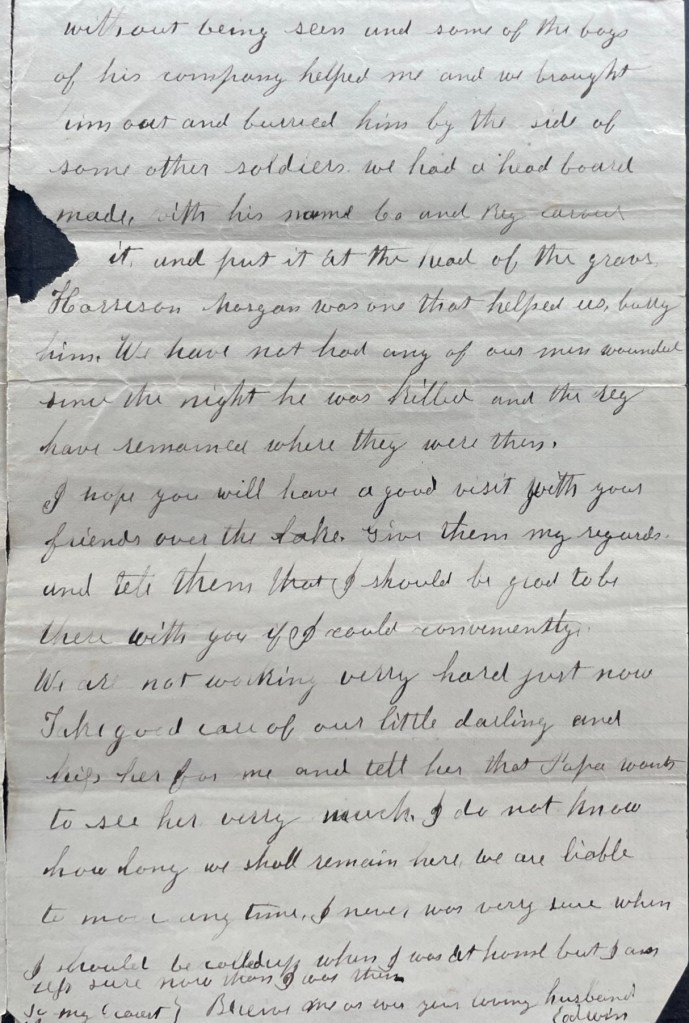 without being seen and some of the boys
of his company helped me and we brought
him out and burried him by the side of
some other soldiers. we had a head board
made, with his name Co and Reg carved
it, and put it at the head of the grave.
Harrison Morgan was one that helped us, burry
him. We have not had any of our men wounded
since the night he was killed and the reg
have remained where they were then.
I hope you will have a good visit with your
friends over the lake. Give them my regards.
and tell them that I should be glad to be
there with you if I could conveniently.
We are not working verry hard just now
Take good care of our little darling and
kiss her for me and tell her that Papa wants
to see her verry much. I do not know
how long we shall remain here, we are liable
to move any time. I never was very sure when
I should be called up when I was at home but I am
less sure now than I was then
To my Believe me as ever your loving husband
Edwin